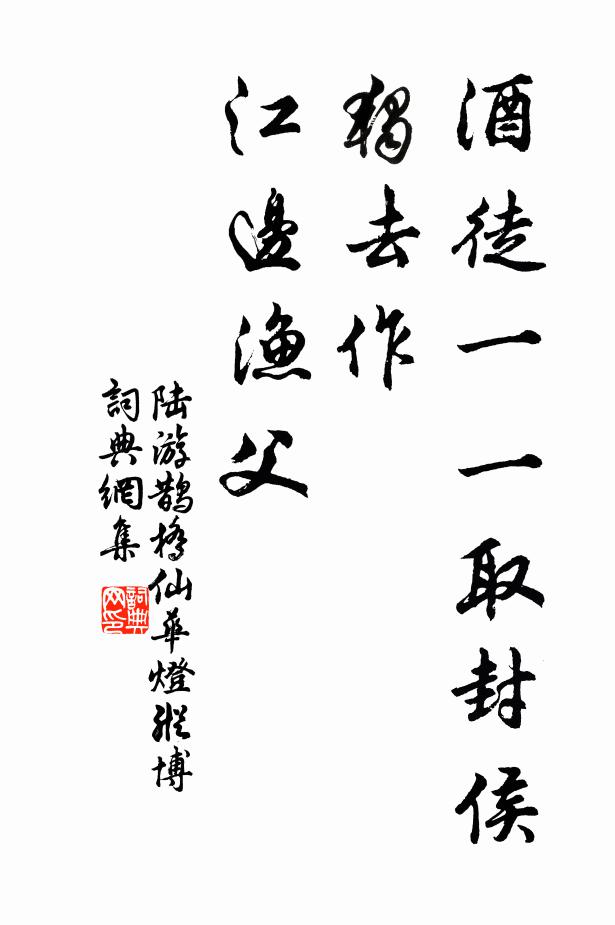 酒徒一一取封侯
獨去作
江邊漁父
陆游鹊橋仙華燈縱博
詞典網集
詞典网印